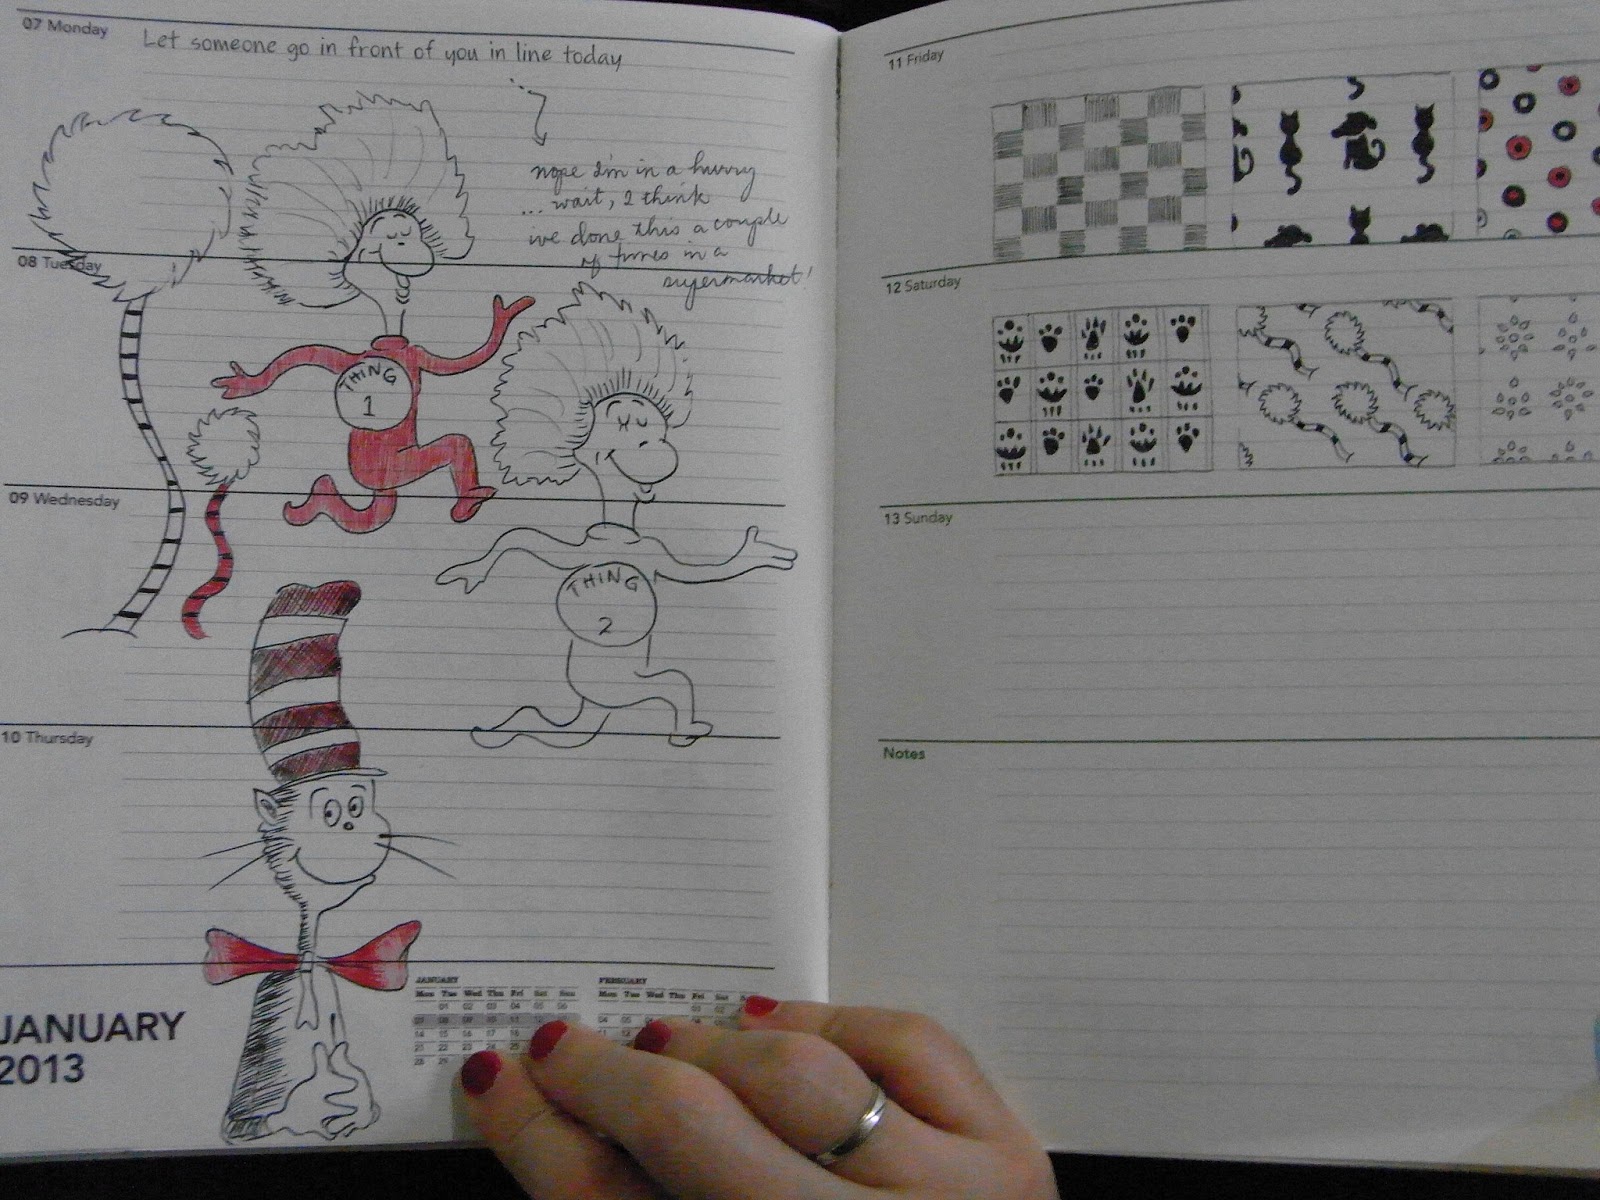 07 Monday
Let someone go in front of you in line today
nope I'm in a hurry
... wait, I think
ive done this a couple
of times in a
supermarket!
08 Tuesday
THING
1
09 Wednesday
THING
2
10 Thursday
JANUARY
2013
JANUARY
Mon Tue Wed Thu Fri Sat Sun
01 02 03 04 05 06
07 08 09 10 11 12
14 15 16 17 18
21 22 23 24 25
28 29
FEBRUARY
Mon Tue Wed Thu Fri Sat
11 Friday
12 Saturday
13 Sunday
Notes